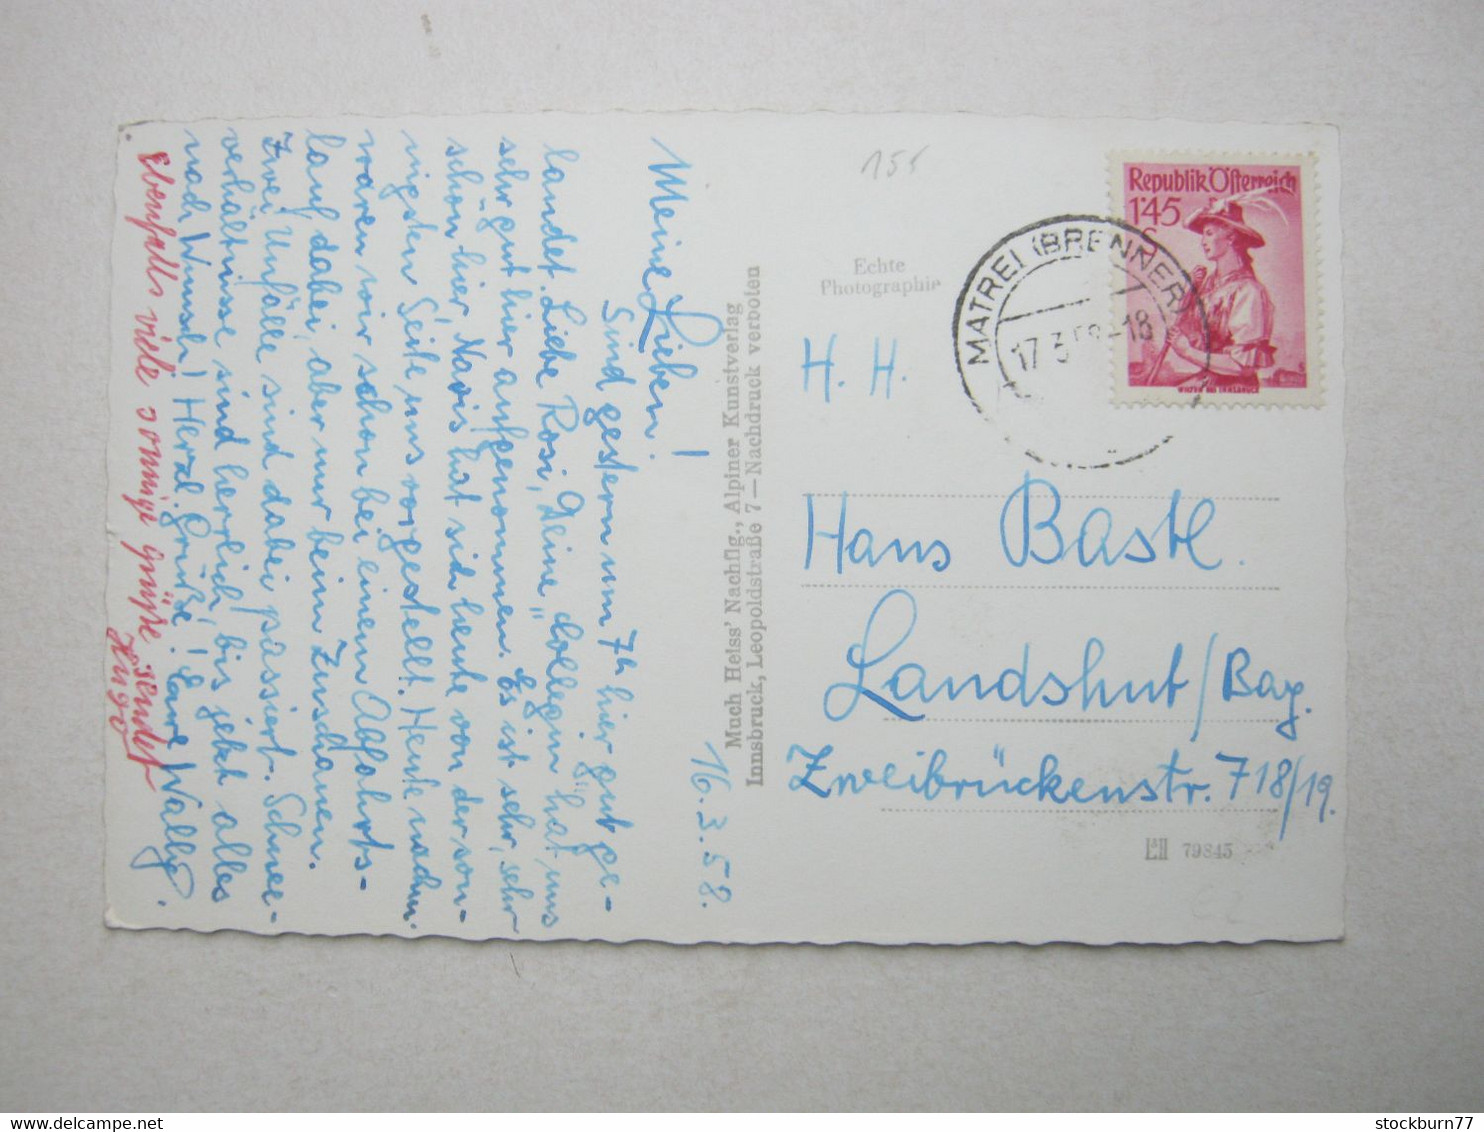 16.3.58.
Meine Lieben!
Sind gestern um 7h hier gut ge-
landet. Liebe Rosi, Deine „Collegin" hat uns
sehr gut hier aufgenommen. Es ist sehr, sehr
schön hier. Navis hat sich heute von der son-
nigsten Seite uns vorgestellt. Heute nachm.
waren wir schon bei einem Abfahrts-
lauf dabei, aber nur beim Zuschauen.
Zwei Unfälle sind dabei passiert. Schnee-
verhältnisse sind herrlich, bis jetzt alles
nach Wunsch! Herzl. Grüße! Eure Wally.
Ebenfalls viele sonnige Grüße sendet
Hugo
Much Heiss' Nachflg., Alpiner Kunstverlag
Innsbruck, Leopoldstraße 7 — Nachdruck verboten
155
Echte
Photographie
Republik Österreich
1·45
S
WILTEN BEI INNSBRUCK
MATREI (BRENNER)
17.3.58-18
H. H.
Hans Bastl.
Landshut/Bay.
Zweibrückenstr. 718/19.
79845
stockburn77